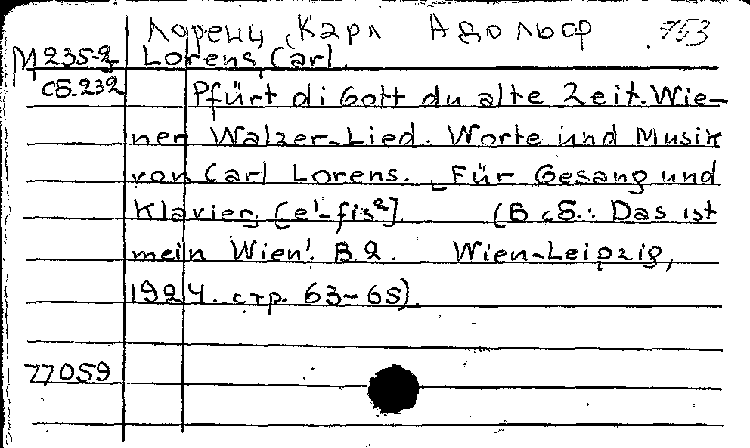 Лоренц, Карл Адольф 753
М 235-2 Lorens, Carl.
сб.232 Pfürt di Gott du alte Zeit. Wie-
ner Walzer-Lied. Worte und Musik
von Carl Lorens. Für Gesang und
Klavier. [e¹-fis²] (В сб.: Das ist
mein Wien! B.2. Wien-Leipzig,
1924. стр. 63-65).
77059